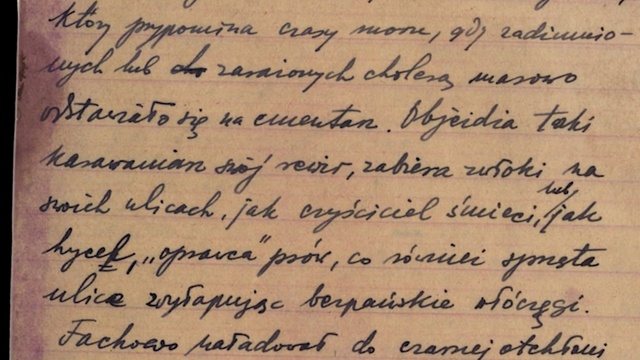 który przypomina czasy morou, gdy zadżumio-
nych lub zarażonych cholerą masowo
odstawiało się na cmentarz. Objeżdża taki
karawaniarz swój rewir, zabiera zwłoki na
swoich ulicach, jak czyściciel śmieci, lub, jak
hycel, „oprawca" psów, co również sprząta
ulice wyłapując bezpańskie włóczęgi.
Fachowo naładował do czarnej otchłani